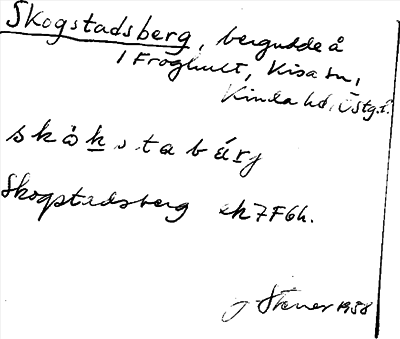 Skogstadsberg, bergudde å
1 Fröghult, Kisa sn,
Kinda hd, Östg.l.
skåkstabärj
Skogstadsberg ek 7F6h.
1958